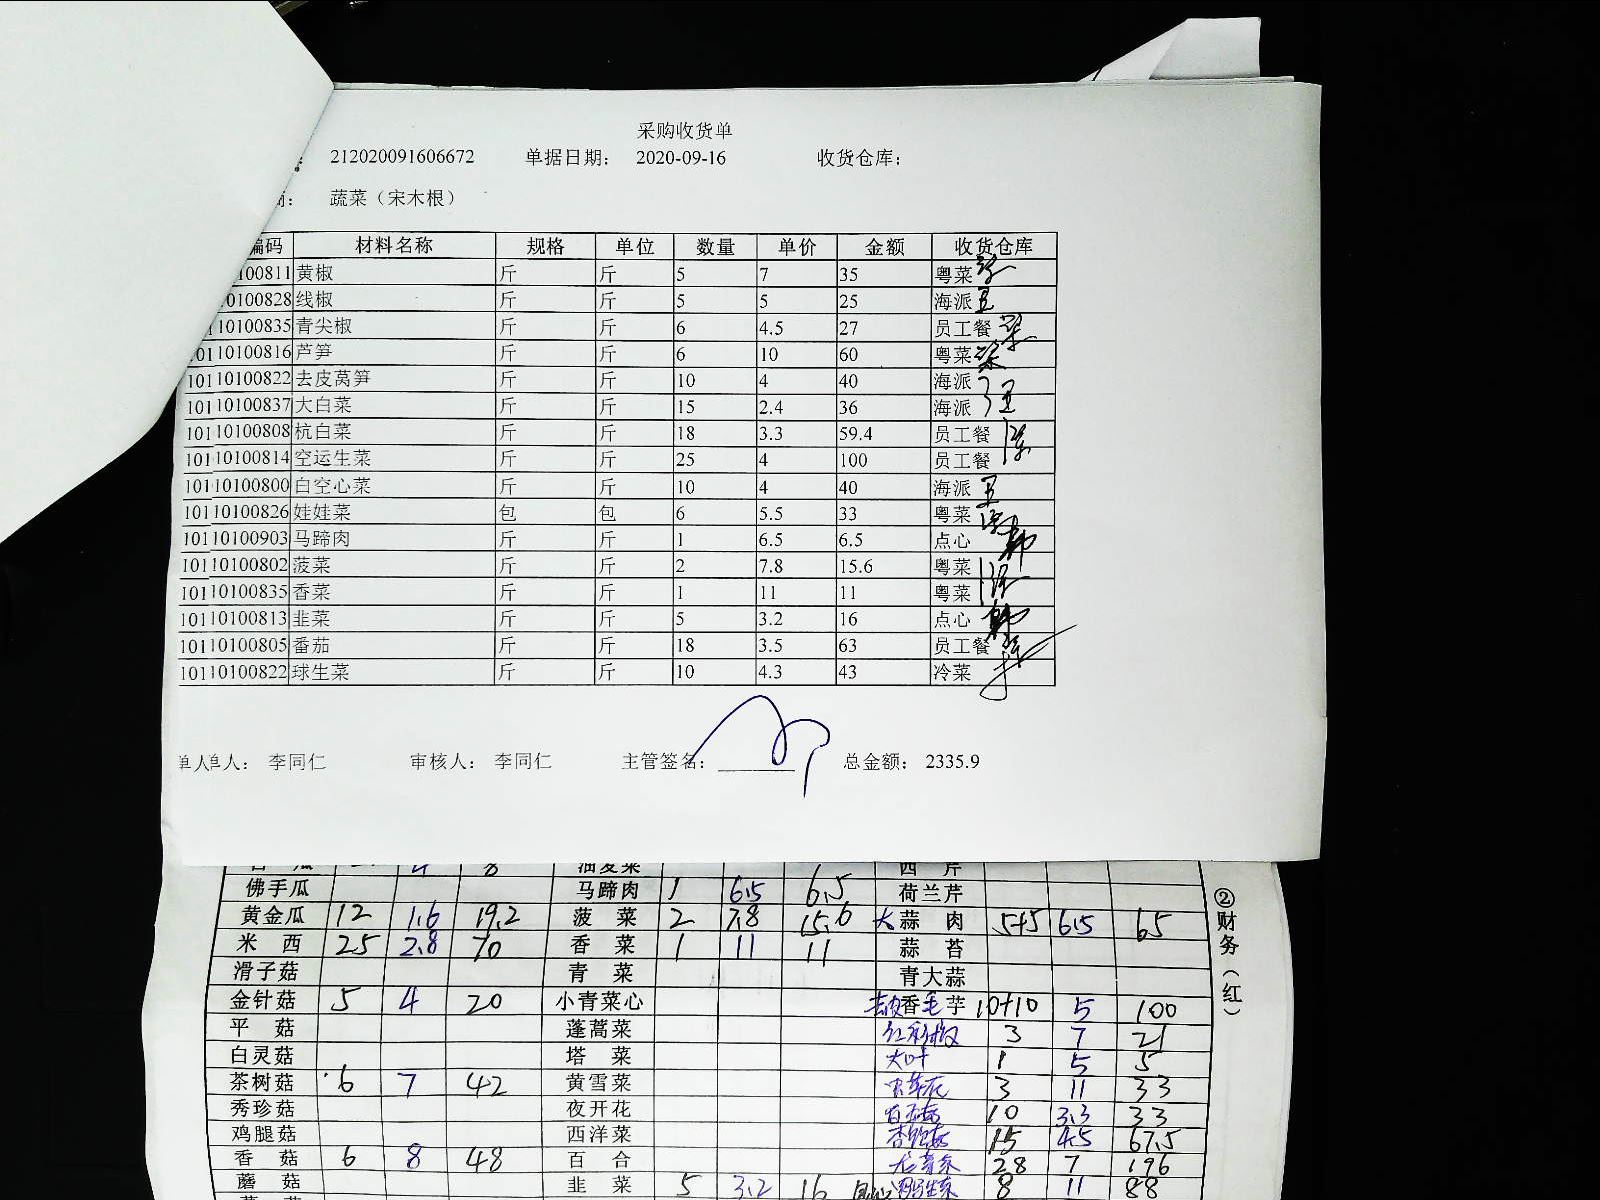 采购收货单
212020091606672 单据日期： 2020-09-16 收货仓库：
商： 蔬菜（宋木根）
编码 材料名称 规格 单位 数量 单价 金额 收货仓库
100811 黄椒 斤 斤 5 7 35 粤菜
0100828 线椒 斤 斤 5 5 25 海派 王
110100835 青尖椒 斤 斤 6 4.5 27 员工餐
10110100816 芦笋 斤 斤 6 10 60 粤菜
10110100822 去皮莴笋 斤 斤 10 4 40 海派
10110100837 大白菜 斤 斤 15 2.4 36 海派 王
10110100808 杭白菜 斤 斤 18 3.3 59.4 员工餐
10110100814 空运生菜 斤 斤 25 4 100 员工餐
10110100800 白空心菜 斤 斤 10 4 40 海派 王
10110100826 娃娃菜 包 包 6 5.5 33 粤菜
10110100903 马蹄肉 斤 斤 1 6.5 6.5 点心
10110100802 菠菜 斤 斤 2 7.8 15.6 粤菜
10110100835 香菜 斤 斤 1 11 11 粤菜
10110100813 韭菜 斤 斤 5 3.2 16 点心
10110100805 番茄 斤 斤 18 3.5 63 员工餐
10110100822 球生菜 斤 斤 10 4.3 43 冷菜
单人单人： 李同仁 审核人： 李同仁 主管签名： 总金额： 2335.9
油麦菜 西芹
佛手瓜 马蹄肉 1 6.5 6.5 荷兰芹
黄金瓜 12 1.6 19.2 菠菜 2 7.8 15.6 大蒜肉 5+5 6.5 65
米西 25 2.8 70 香菜 1 11 11 蒜苔
滑子菇 青菜 青大蒜
金针菇 5 4 20 小青菜心 去皮香毛芋 10+10 5 100
平菇 蓬蒿菜 红彩椒 3 7 21
白灵菇 塔菜 大叶 1 5 5
茶树菇 6 7 42 黄雪菜 3 11 33
秀珍菇 夜开花 10 3.3 33
鸡腿菇 西洋菜 15 4.5 67.5
香菇 6 8 48 百合 28 7 196
蘑菇 韭菜 5 3.2 16 8 11 88
②财务（红）